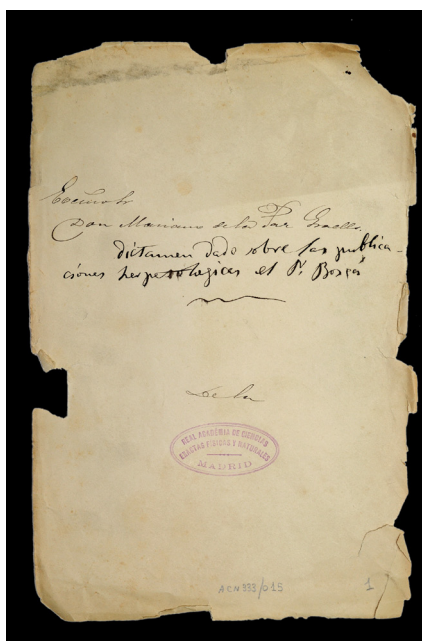 Excmo Sr
Don Mariano de la Paz Graells.
dictamen dado sobre las publica-
ciones herpetologicas el Sr. Boscá
De la
REAL ACADEMIA DE CIENCIAS
EXACTAS FISICAS Y NATURALES
MADRID
ACN 333/015
1